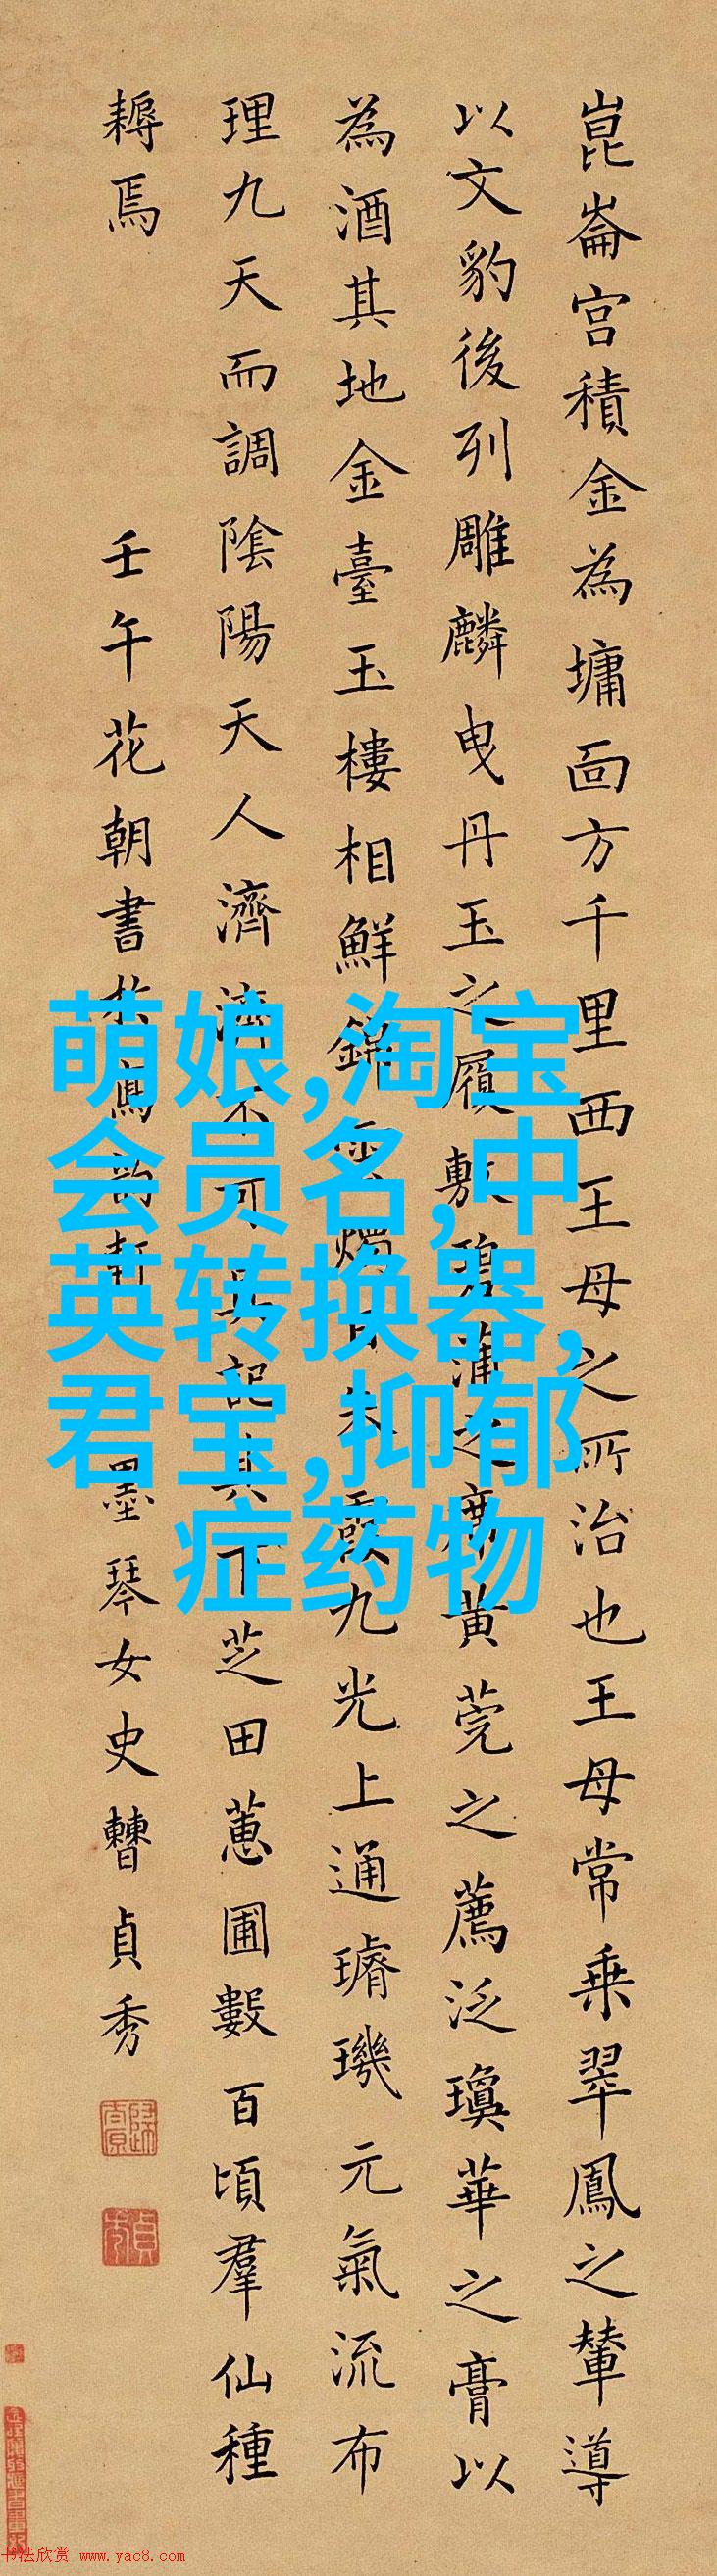 崑崙宮積金為墉面方千里西王母之所治也王母常乗翠鳳之輦導
以文豹後列雕麟曳丹玉之履敷碧蒲之席黄莞之薦泛瓊華之膏以
為酒其地金臺玉樓相鮮錦雲燭日朱霞九光上通璿璣元氣流布
理九天而調陰陽天人濟濟不可具記其下芝田蕙圃數百頃羣仙種
耨焉
壬午花朝書於寫韵軒 墨琴女史曹貞秀
萌娘,淘宝
会员名,中
英转换器,
君宝,抑郁
症药物
书法欣赏 www.yac8.com